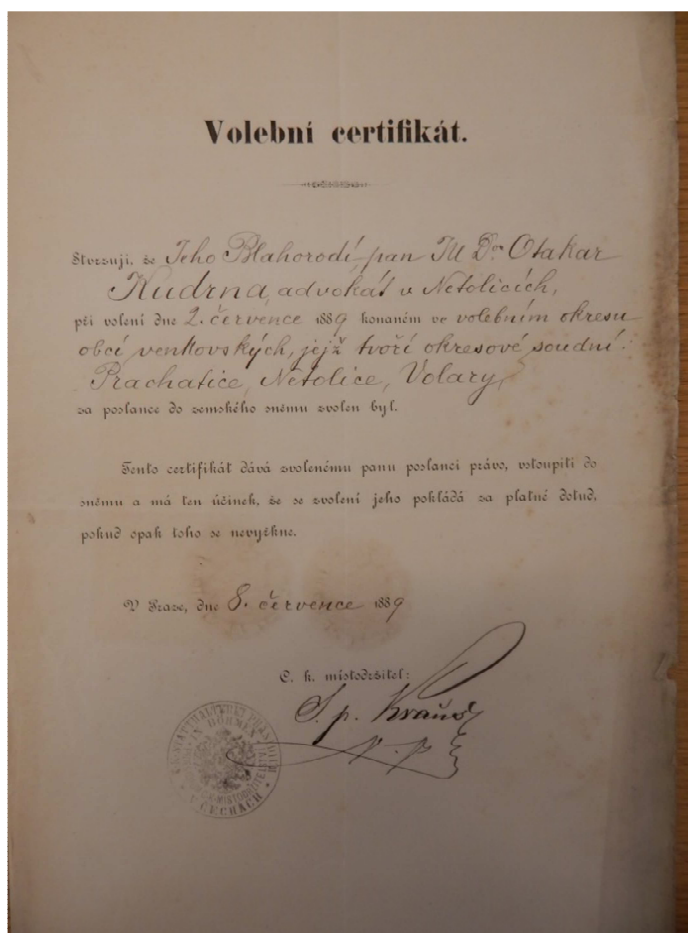 Volební certifikát.
Stvrzuji, že Jeho Blahorodí pan JU Dr. Otakar
Kudrna, advokát v Netolicích,
při volení dne 2. července 1889 konaném ve volebním okresu
obcí venkovských, jejž tvoří okresové soudní:
Prachatice, Netolice, Volary,
za poslance do zemského sněmu zvolen byl.
Tento certifikát dává zvolenému panu poslanci právo, vstoupiti do
sněmu a má ten účinek, že se zvolení jeho pokládá za platné dotud,
pokud opak toho se nevyřkne.
V Praze, dne 8. července 1889
C. k. místodržitel:
Kraus
IN BÖHMEN
V ČECHÁCH